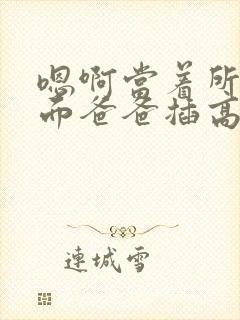 嗯啊當着所
而爸爸插高
連城雪